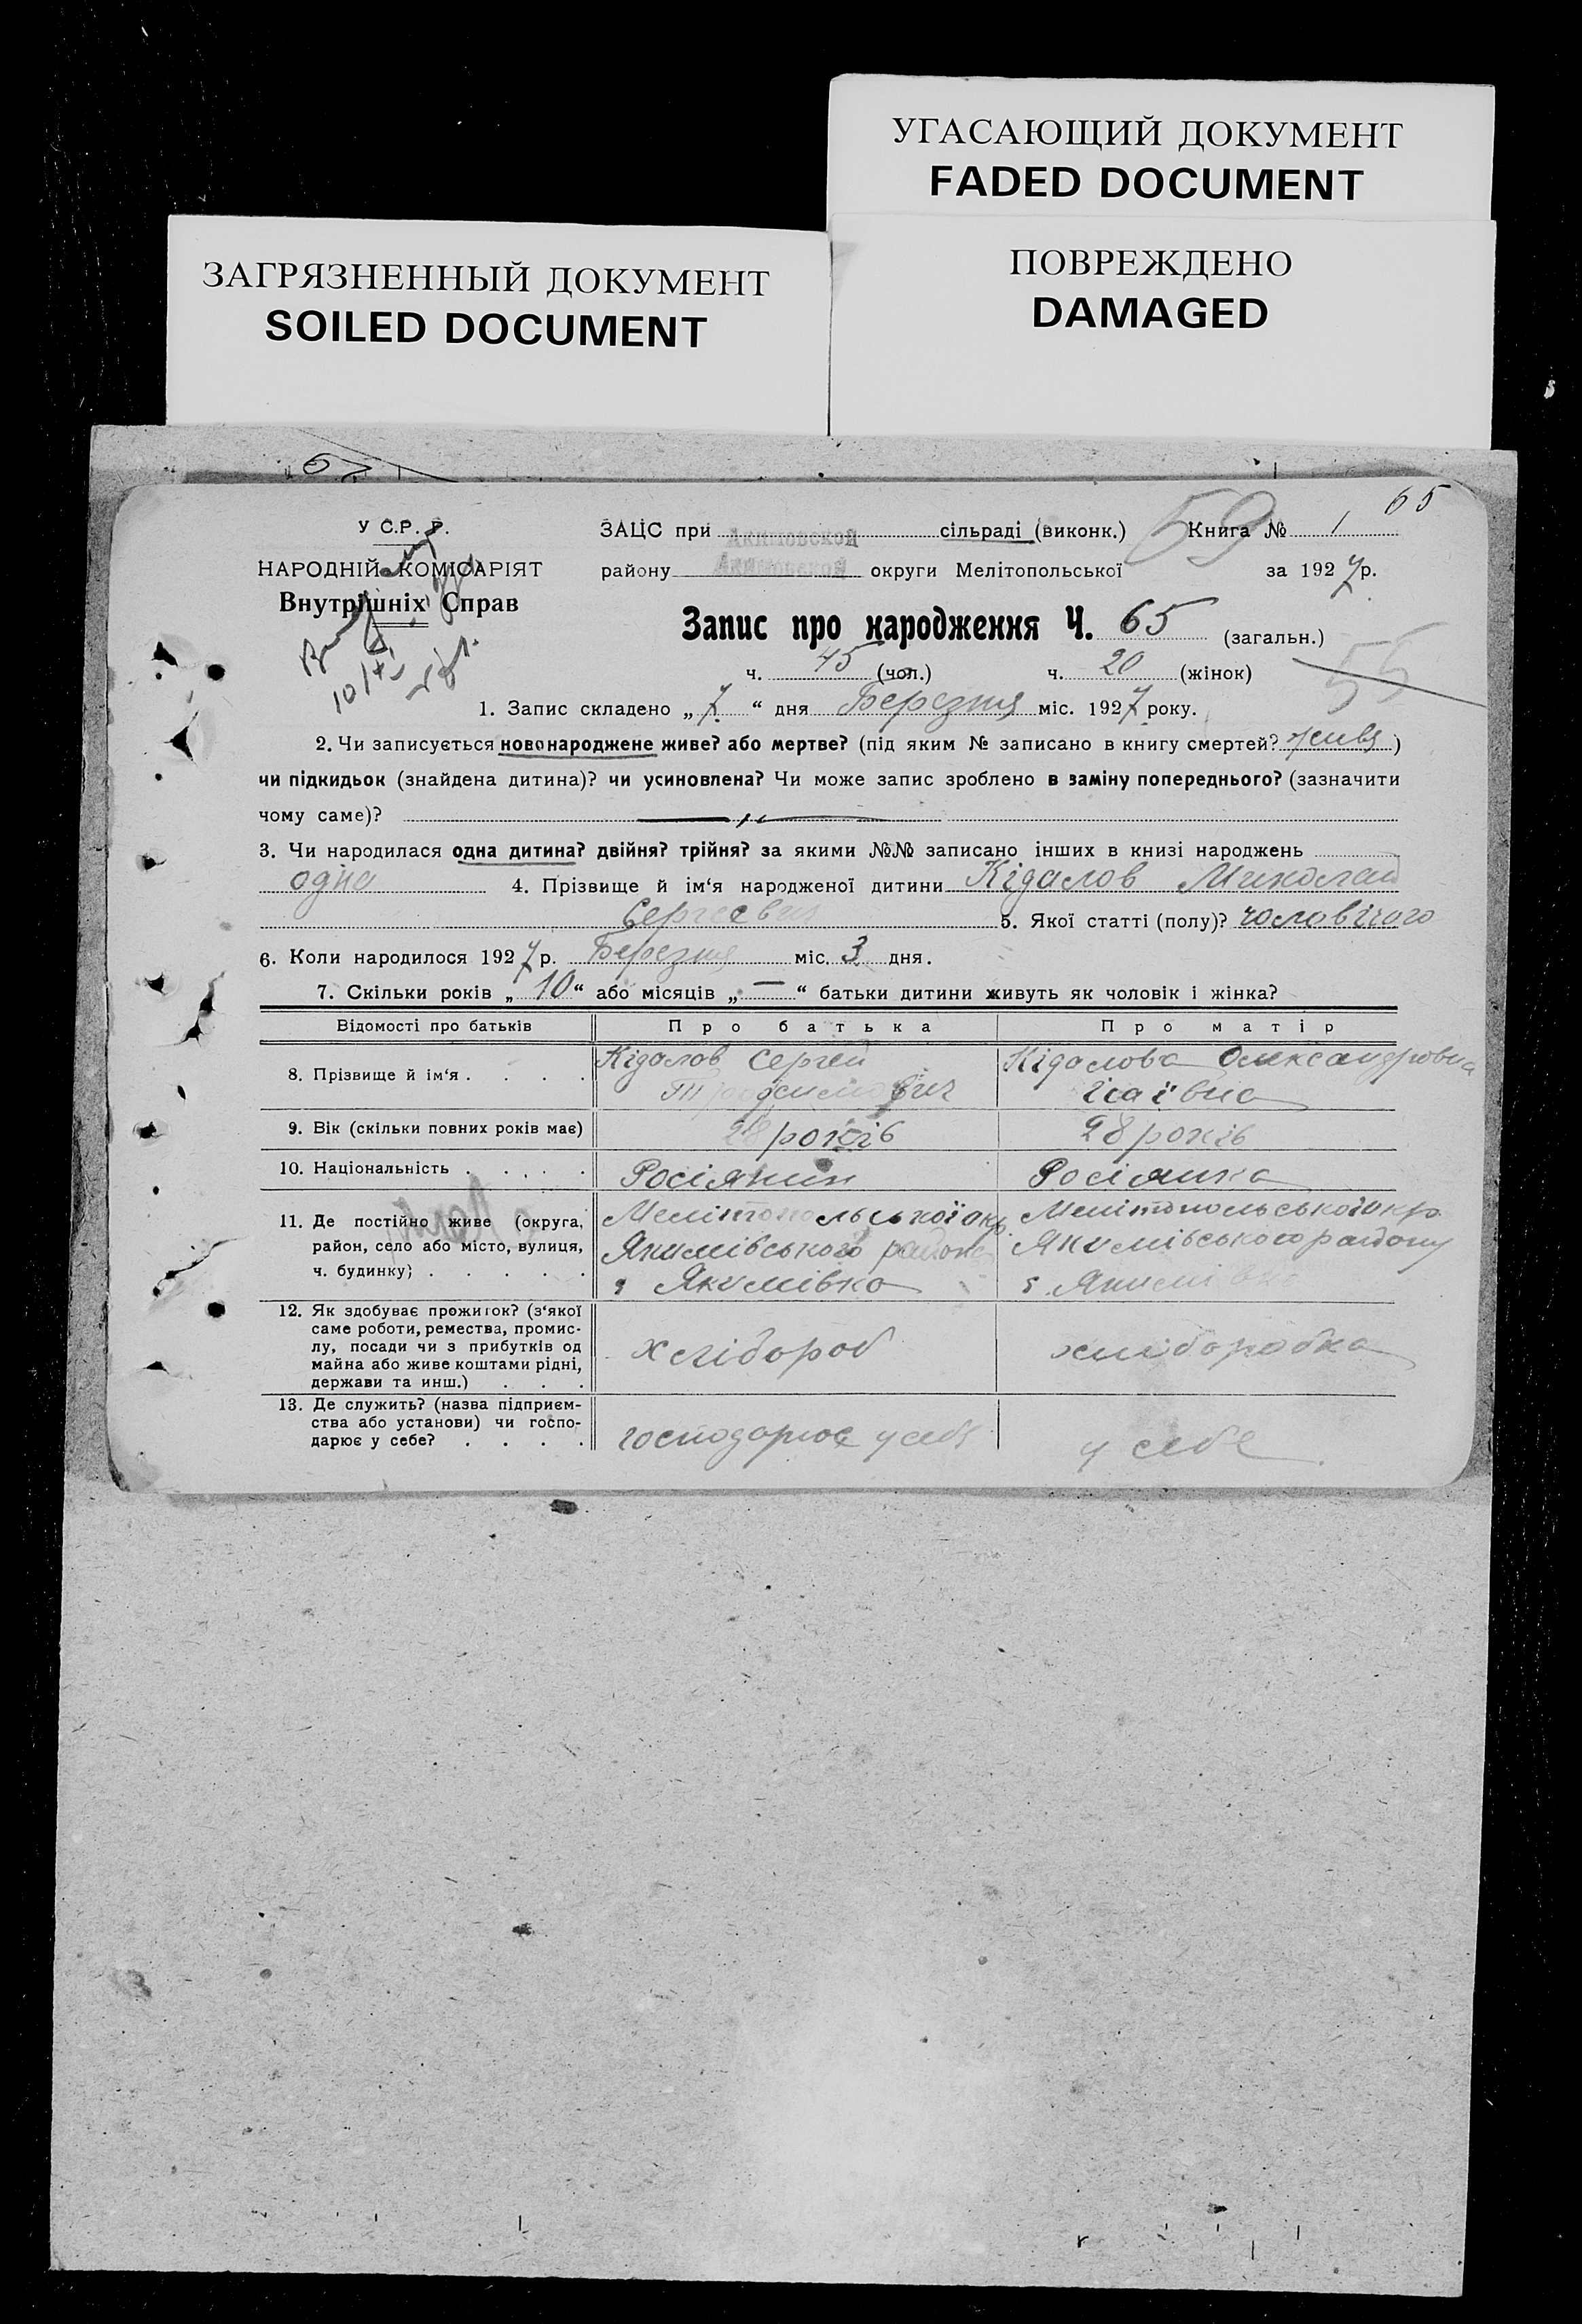 УГАСАЮЩИЙ ДОКУМЕНТ
FADED DOCUMENT
ЗАГРЯЗНЕННЫЙ ДОКУМЕНТ
SOILED DOCUMENT
ПОВРЕЖДЕНО
DAMAGED
65
У С.Р.Р.
НАРОДНІЙ КОМІСАРІЯТ
Внутрішніх Справ
ЗАЦС при Акимовской сільраді (виконк.) 59 Книга № 1
району Акимовской округи Мелітопольської за 1927 р.
Запис про народження Ч. 65 (загальн.)
ч. 45 (чол.) ч. 20 (жінок) 55
1. Запис складено „ 7 “ дня Березня міс. 1927 року.
2. Чи записується новонароджене живе? або мертве? (під яким № записано в книгу смертей? живе )
чи підкидьок (знайдена дитина)? чи усиновлена? Чи може запис зроблено в заміну попереднього? (зазначити
чому саме)?
3. Чи народилася одна дитина? двійня? трійня? за якими №№ записано інших в книзі народжень
одна 4. Прізвище й ім‘я народженої дитини Кідалов Миколай
Сергеевич 5. Якої статті (полу)? чоловічого
6. Коли народилося 1927 р. Березня міс. 3 дня.
7. Скільки років „ 10 “ або місяців „ — “ батьки дитини живуть як чоловік і жінка?
Відомості про батьків Про батька Про матір
8. Прізвище й ім‘я . . . . Кідалов Сергей Кідалова Олександровна
Ісаївна
9. Вік (скільки повних років має) 28 років 28 років
10. Національність . . . . . Росіянин Росіянка
11. Де постійно живе (округа, Мелітопольської окр. Мелітопольської окр.
район, село або місто, вулиця, Якимівського району Якимівського району
ч. будинку) . . . . . с Якимівка с. Якимівка
12. Як здобуває прожиток? (з‘якої
саме роботи, ремества, промис-
лу, посади чи з прибутків од хлібороб хліборобка
майна або живе коштами рідні,
держави та инш.) . . .
13. Де служить? (назва підприєм-
ства або установи) чи госпо-
дарює у себе? . . . . господарює у себе у себе